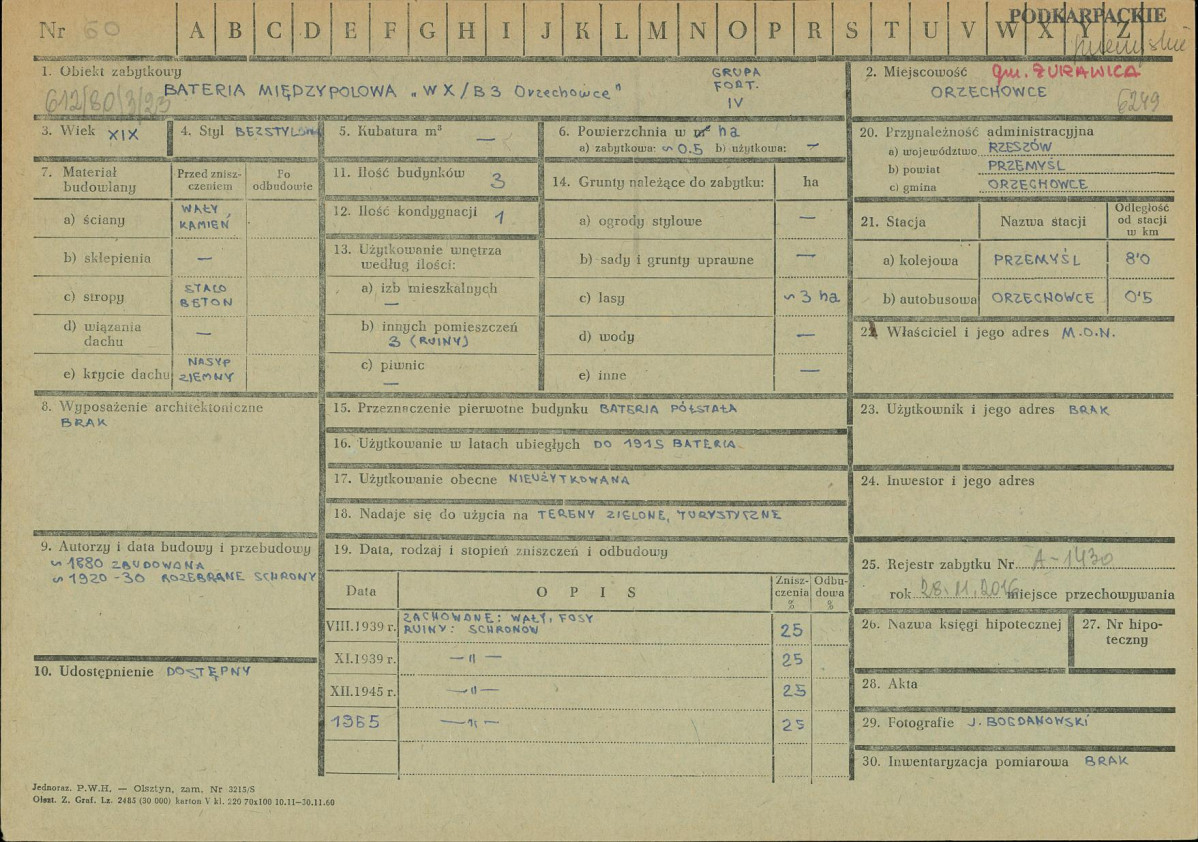 PODKARPACKIE
Nr 60 A B C D E F G H I J K L M N O P R S T U V W X Y Z
przemyskie
1. Obiekt zabytkowy
612/80/3/23
BATERIA MIĘDZYPOLOWA „WX/B3 Orzechowce"
GRUPA
FORT.
IV
2. Miejscowość gm. ŻURAWICA
ORZECHOWCE
6249
3. Wiek XIX
4. Styl BEZSTYLOWA
5. Kubatura m³ —
6. Powierzchnia w m² ha
a) zabytkowa: ~ 0.5 b) użytkowa: —
20. Przynależność administracyjna
a) województwo RZESZÓW
b) powiat PRZEMYŚL
c) gmina ORZECHOWCE
7. Materiał budowlany
Przed zniszczeniem
Po odbudowie
a) ściany WAŁY, KAMIEŃ
b) sklepienia —
c) stropy STAL BETON
d) wiązania dachu —
e) krycie dachu NASYP ZIEMNY
11. Ilość budynków 3
12. Ilość kondygnacji 1
13. Użytkowanie wnętrza
według ilości:
a) izb mieszkalnych
—
b) innych pomieszczeń
3 (RUINY)
c) piwnic
—
14. Grunty należące do zabytku: ha
a) ogrody stylowe —
b) sady i grunty uprawne —
c) lasy ~ 3 ha
d) wody —
e) inne —
21. Stacja Nazwa stacji Odległość od stacji w km
a) kolejowa PRZEMYŚL 8'0
b) autobusowa ORZECHOWCE 0'5
22. Właściciel i jego adres M.O.N.
8. Wyposażenie architektoniczne
BRAK
15. Przeznaczenie pierwotne budynku BATERIA PÓŁSTAŁA
16. Użytkowanie w latach ubiegłych DO 1915 BATERIA
17. Użytkowanie obecne NIEUŻYTKOWANA
18. Nadaje się do użycia na TERENY ZIELONE, TURYSTYCZNE
23. Użytkownik i jego adres BRAK
24. Inwestor i jego adres
9. Autorzy i data budowy i przebudowy
~ 1880 ZBUDOWANA
~ 1920-30 ROZEBRANE SCHRONY
10. Udostępnienie DOSTĘPNY
19. Data, rodzaj i stopień zniszczeń i odbudowy
Data O P I S Zniszczenia % Odbudowa %
VIII.1939 r. ZACHOWANE: WAŁY, FOSY
RUINY: SCHRONÓW 25
XI.1939 r. —„— 25
XII.1945 r. —„— 25
1965 —„— 25
25. Rejestr zabytku Nr A-1430
rok 28.11.2016 miejsce przechowywania
26. Nazwa księgi hipotecznej
27. Nr hipoteczny
28. Akta
29. Fotografie J. BOGDANOWSKI
30. Inwentaryzacja pomiarowa BRAK
Jednoraz. P.W.H. — Olsztyn, zam. Nr 3215/S
Olszt. Z. Graf. Lz. 2485 (30 000) karton V kl. 220 70x100 10.11—30.11.60